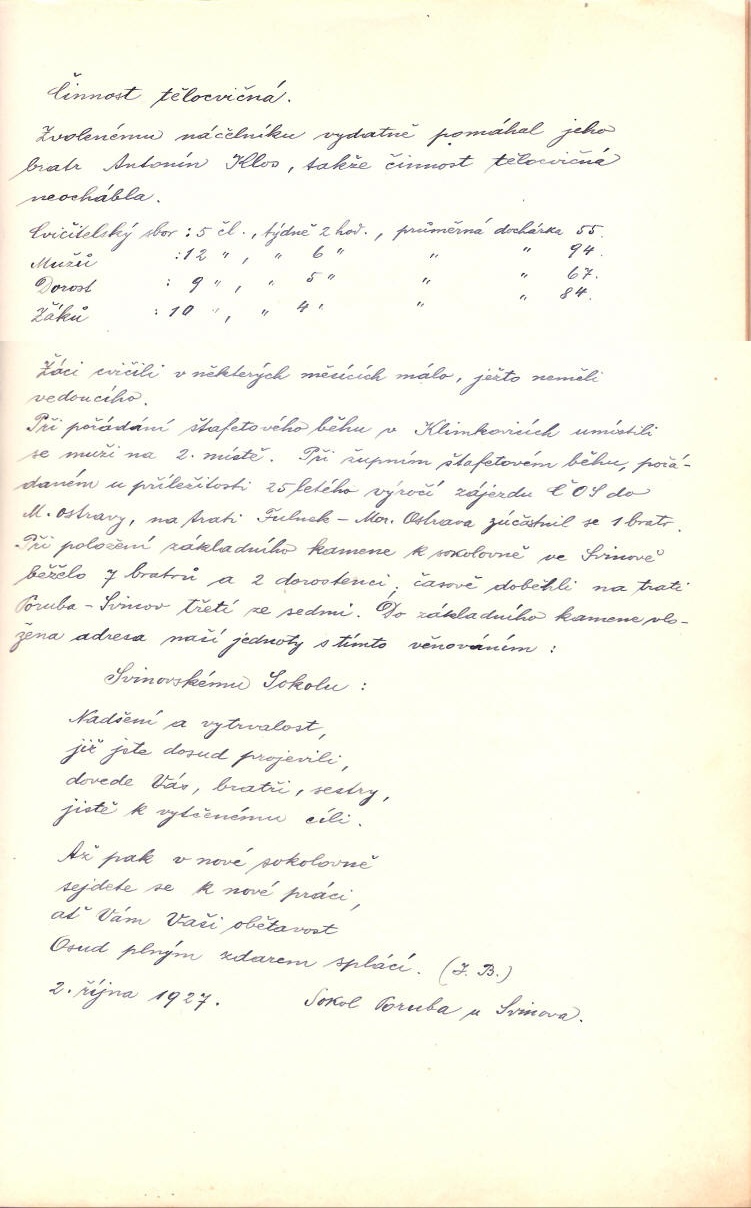 Činnost tělocvičná.
Zvolenému náčelníku vydatně pomáhal jeho
bratr Antonín Klos, takže činnost tělocvičná
neochábla.
Cvičitelský sbor : 5 čl., týdně 2 hod., průměrná docházka 55.
Mužů : 12 " , " 6 " " " 94.
Dorost : 9 " , " 5 " " " 67.
Žáků : 10 " , " 4 " " " 84.
Žáci cvičili v některých měsících málo, ježto neměli
vedoucího.
Při pořádání štafetového běhu v Klimkovicích umístili
se muži na 2. místě. Při župním štafetovém běhu, pořá-
daném u příležitosti 25 letého výročí zájezdu ČOS do
M. Ostravy, na trati Fulnek - Mor. Ostrava zúčastnil se 1 bratr.
Při položení základního kamene k sokolovně ve Svinově
běželo 7 bratrů a 2 dorostenci, časově doběhli na trati
Poruba - Svinov třetí ze sedmi. Do základního kamene vlo-
žena adresa naší jednoty s tímto věnováním :
Svinovskému Sokolu :
Nadšení a vytrvalost,
již jste dosud projevili,
dovede Vás, bratři, sestry,
jistě k vytčenému cíli.
Až pak v nové sokolovně
sejdete se k nové práci,
ať Vám Vaši obětavost
Osud plným zdarem splácí. (J. B.)
2. října 1927. Sokol Poruba u Svinova.